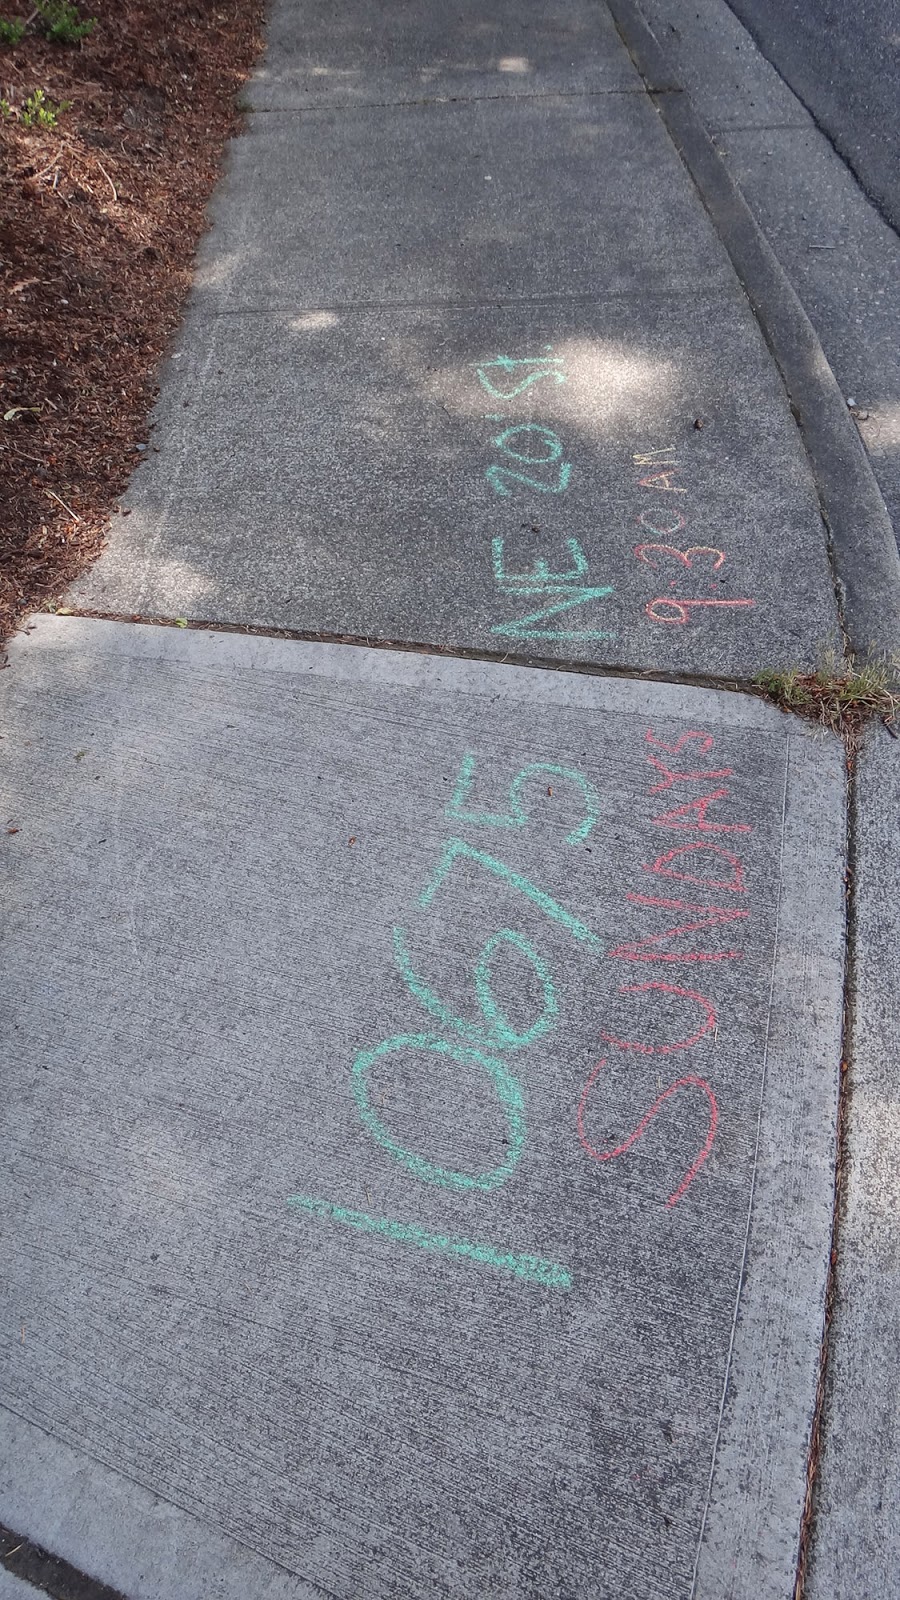 10675 NE 20' St.
SUNDAYS 9:30 AM